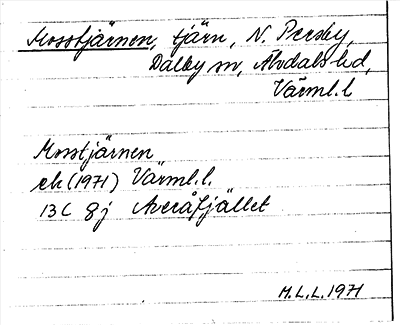 Mosstjärnen, tjärn, N. Persby,
Dalby sn, Älvdals hd,
Värml. l
Mosstjärnen
ek (1971) Värml. l.
13C 8j Averåfjället
M.L.L. 1971